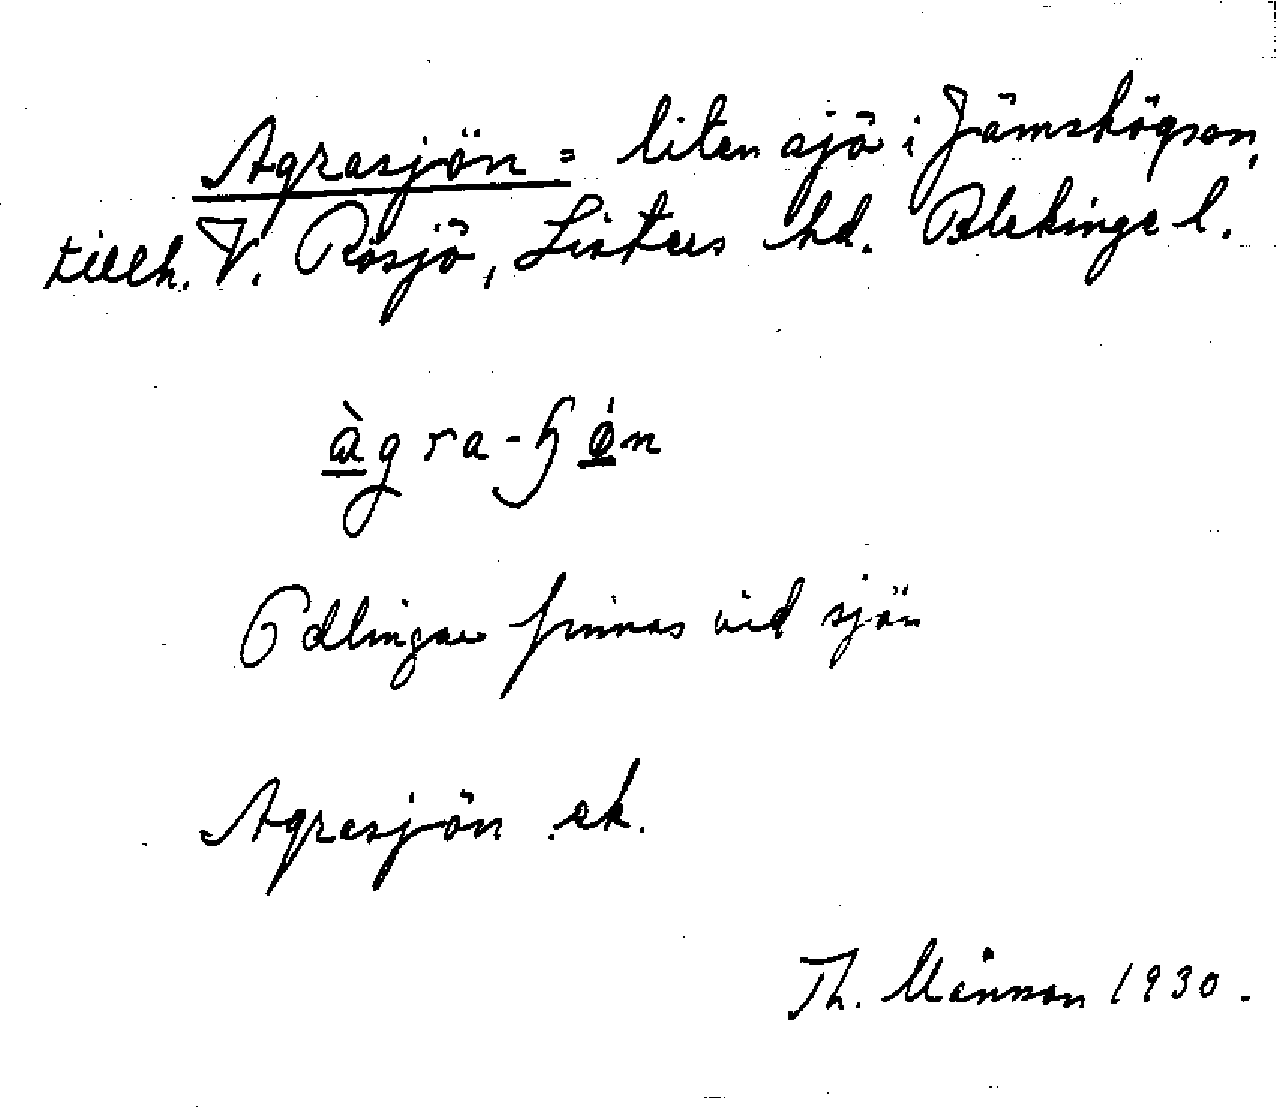 Agrasjön = liten sjö i Jämshögssn,
tillh. V. Rösjö, Listers hd. Blekinge l.
àgra-ɧǿn
Odlingar finnas vid sjön
Agrasjön ek.
Th. Månson 1930.